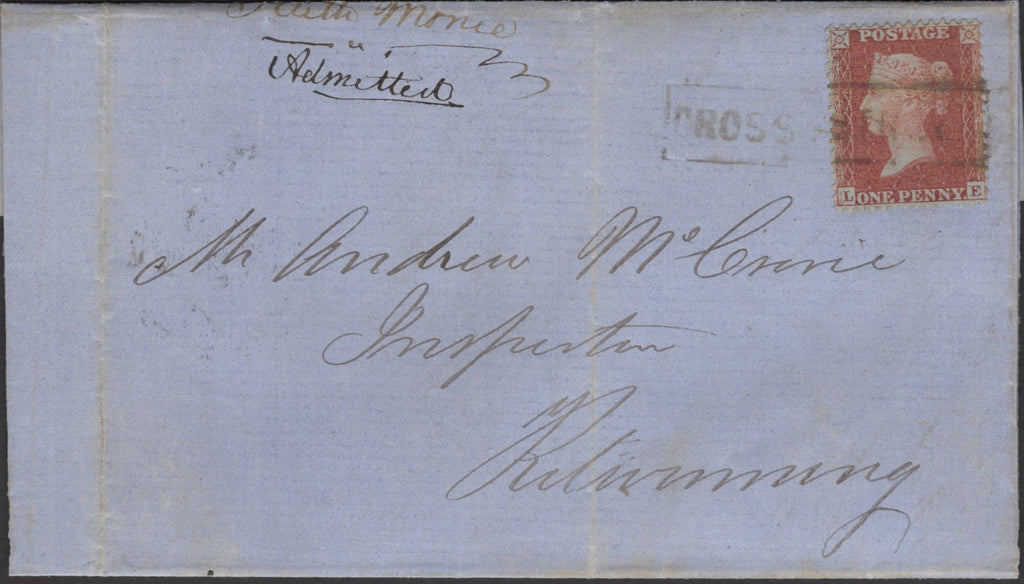 Monie
Admitted
POSTAGE
CROSS
L ONE PENNY. E
Mr Andrew McCrone
Inspector
Kilwinning